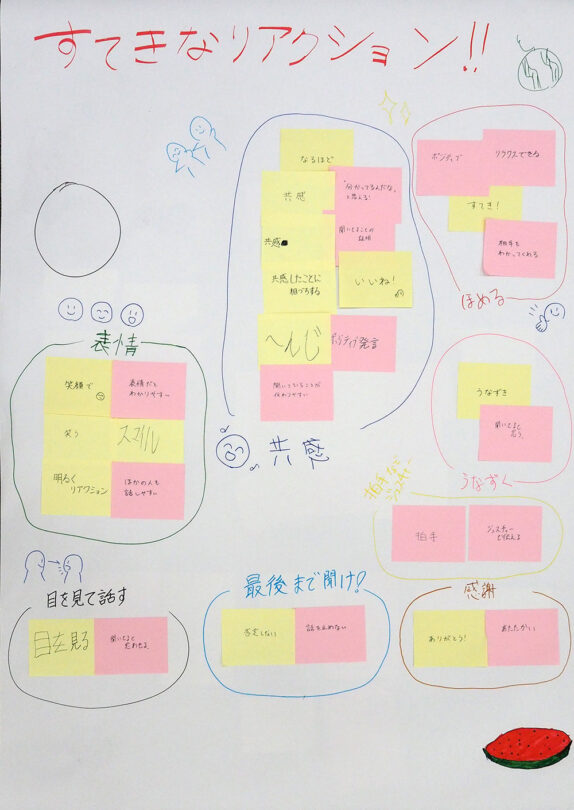 すてきなリアクション!!
なるほど
共感
"分かってるんだな"
と思える!
共感
聞いてることの
証明
共感したことに
相づちする
いいね!
へんじ
ポジティブ発言
聞いていることが
伝わりやすい
共感
ポジティブ
リラックスできる
すてき!
相手も
わかってくれる
ほめる
表情
笑顔で
表情だと
わかりやすい
笑う
スマイル
明るく
リアクション
ほかの人も
話しやすい
うなずき
聞いてると
思う
うなずく
拍手など
ジェスチャー
拍手
ジェスチャー
で伝える
目を見て話す
目を見る
聞いてると
思わせる
最後まで聞け!
否定しない
話を止めない
感謝
ありがとう!
あたたかい